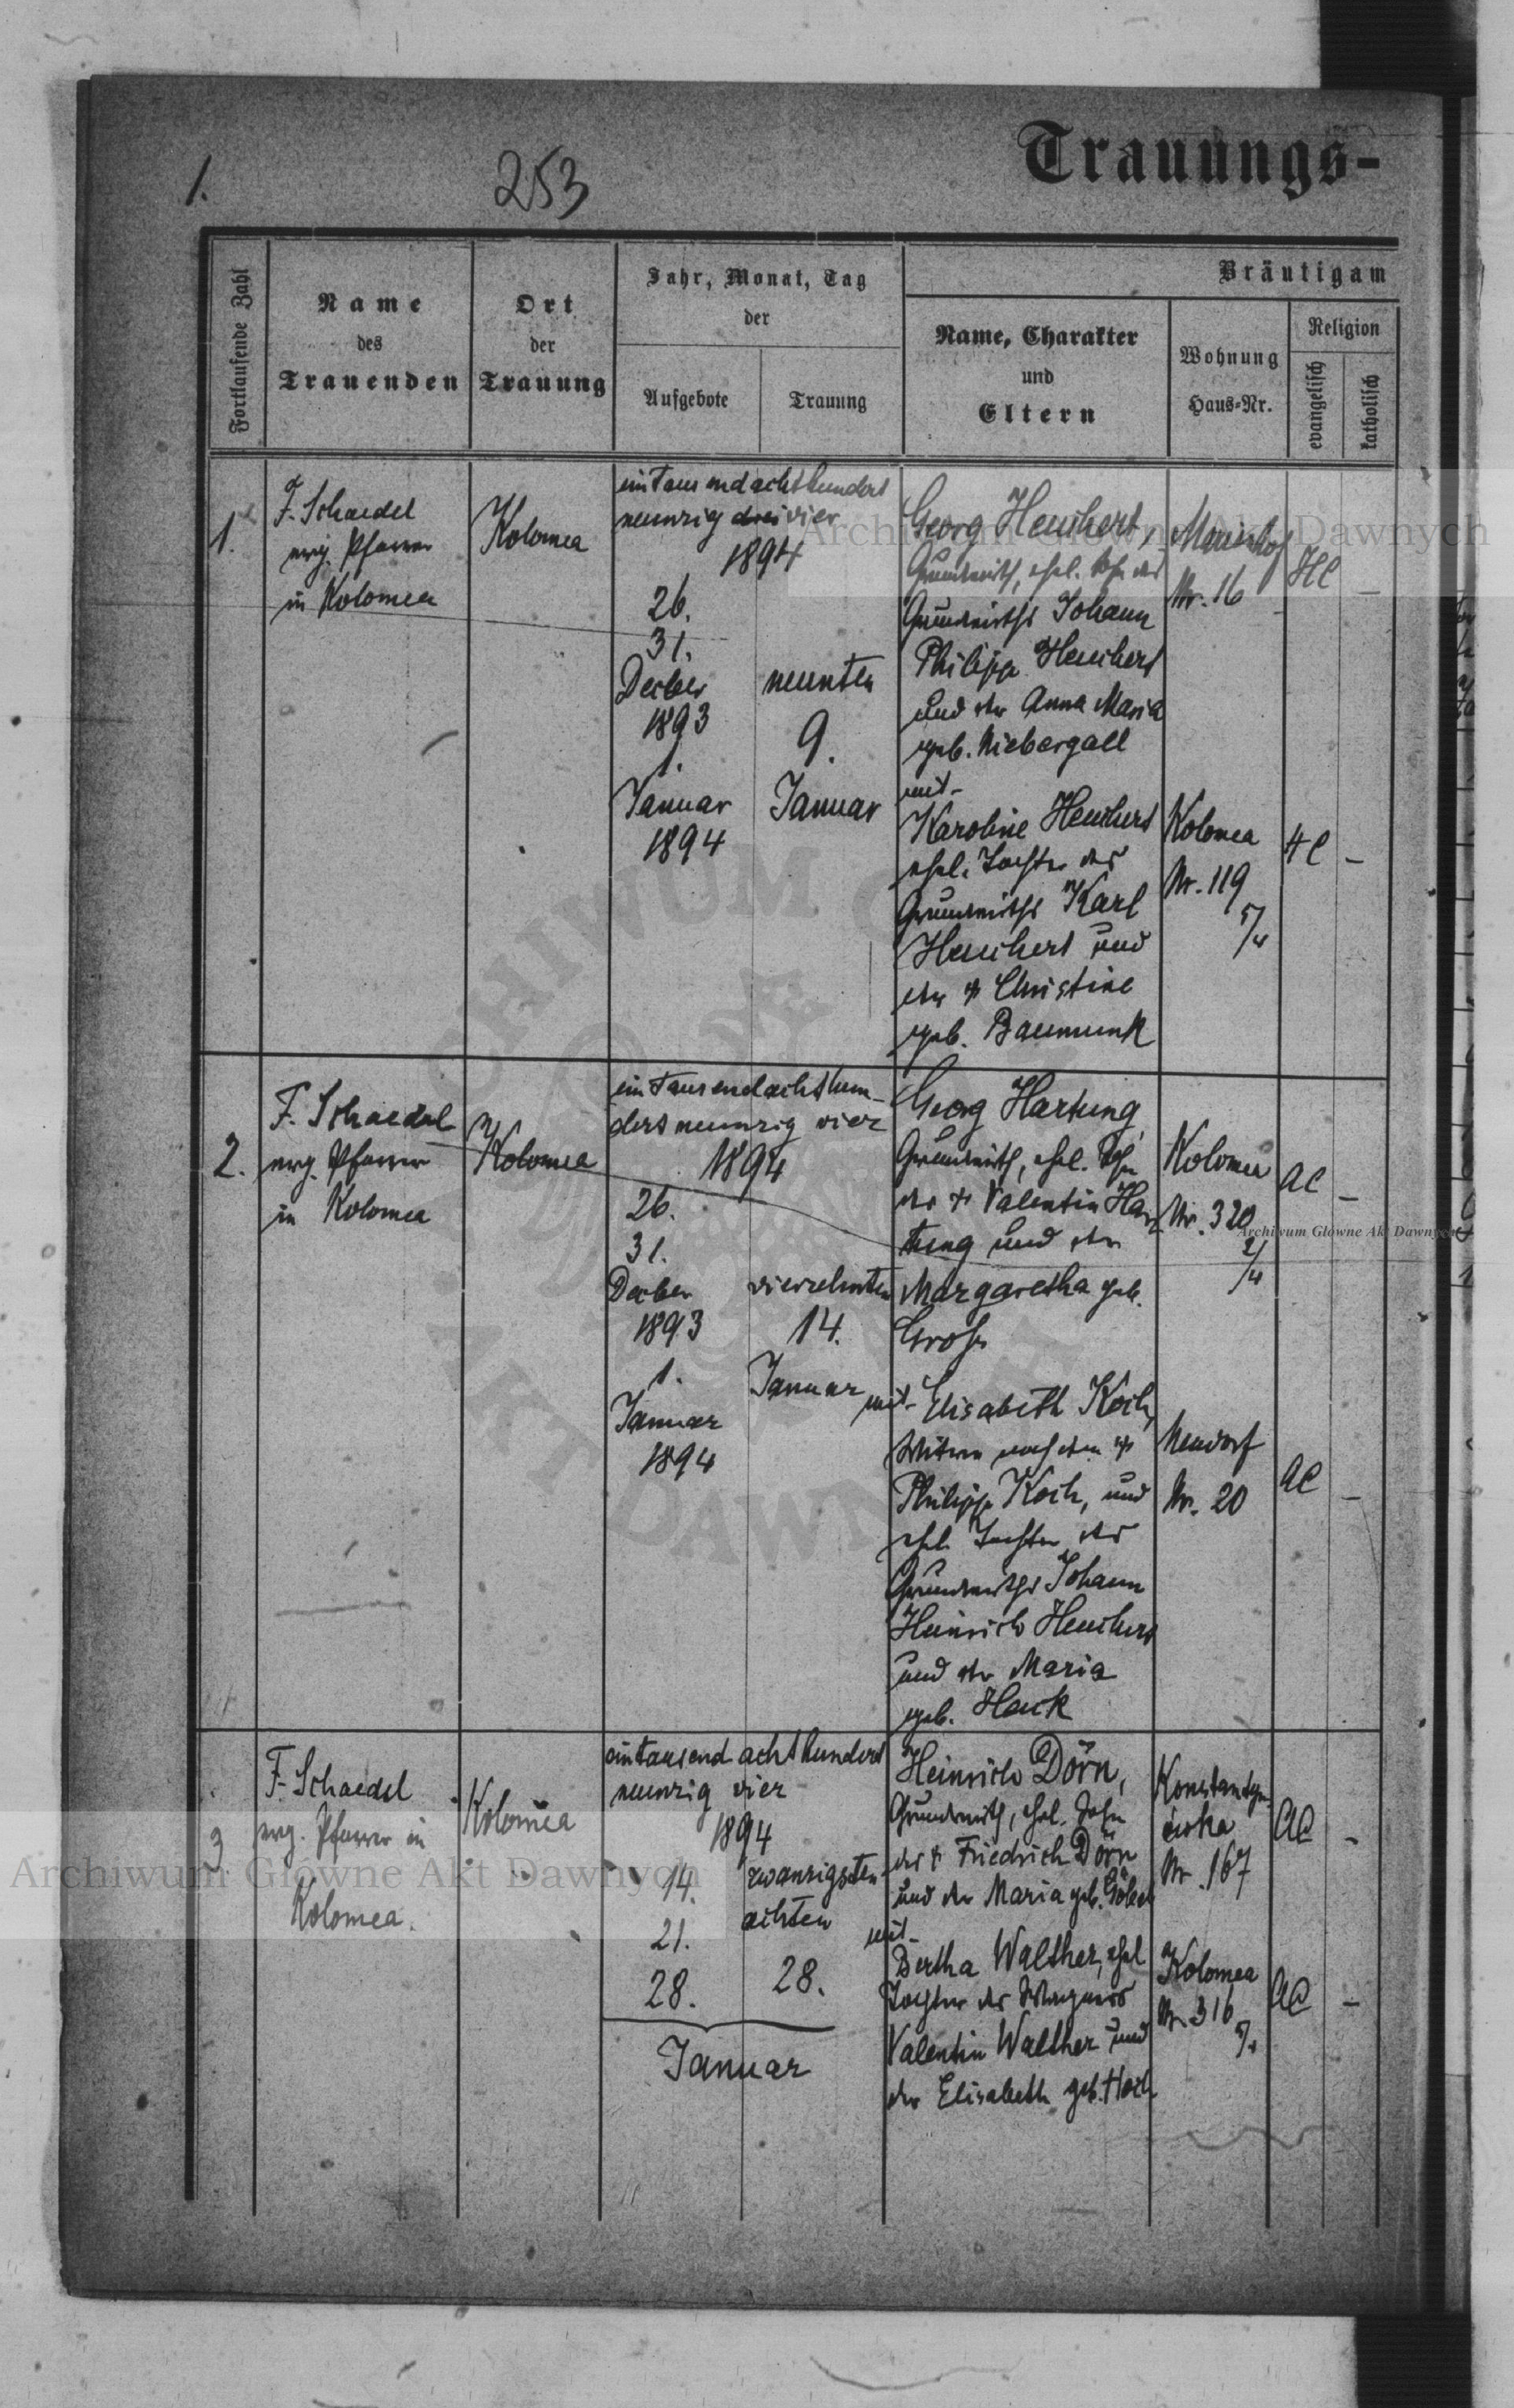 1.
253
Trauungs-
Fortlaufende Zahl
Name
des
Trauenden
Ort
der
Trauung
Jahr, Monat, Tag
der
Aufgebote
Trauung
Bräutigam
Name, Charakter
und
Eltern
Wohnung
Haus-Nr.
Religion
evangelisch
katholisch
1.
F. Schaedel
evg. Pfarrer
in Kolomea
Kolomea
eintausendachthundert
neunzig drei vier
1894
26.
31.
Decber
1893
1.
Januar
1894
neunten
9.
Januar
Georg Heuchert,
Grundwirth, ehel. Sohn des
Grundwirths Johann
Philipp Heuchert
und der Anna Maria
geb. Niebergall
mit
Karoline Heuchert
ehel. Tochter des
Grundwirths Karl
Heuchert und
der † Christine
geb. Baumunk
Mariahof
Nr. 16
HC
–
Kolomea
Nr. 119
5/4
HC
–
2.
F. Schaedel
evg. Pfarrer
in Kolomea
Kolomea
eintausendachthun-
dertneunzig vier
1894
26.
31.
Decber
1893
1.
Januar
1894
vierzehnten
14.
Januar
Georg Hartung
Grundwirth, ehel. Sohn
des † Valentin Har-
tung und der
Margaretha geb.
Gross
mit Elisabeth Koch,
Witwe nach dem †
Philipp Koch, und
ehel. Tochter des
Grundwirths Johann
Heinrich Heuchert
und der Maria
geb. Hauk
Kolomea
Nr. 320
2/4
AC
–
Neudorf
Nr. 20
AC
–
3
F. Schaedel
evg. Pfarrer in
Kolomea.
Kolomea
eintausend achthundert
neunzig vier
1894
14.
21.
28.
zwanzigsten
achten
28.
Januar
Heinrich Dörn,
Grundwirth, ehel. Sohn
des † Friedrich Dörn
und der Maria geb. Göbel
mit
Bertha Walther, ehel
Tochter des Wagners
Valentin Walther und
der Elisabeth geb. Hoch
Nr. 167
AC
–
Kolomea
Nr. 316
5/4
AC
–
Archiwum Główne Akt Dawnych
Archiwum Główne Akt Dawnych
Archiwum Główne Akt Dawnych